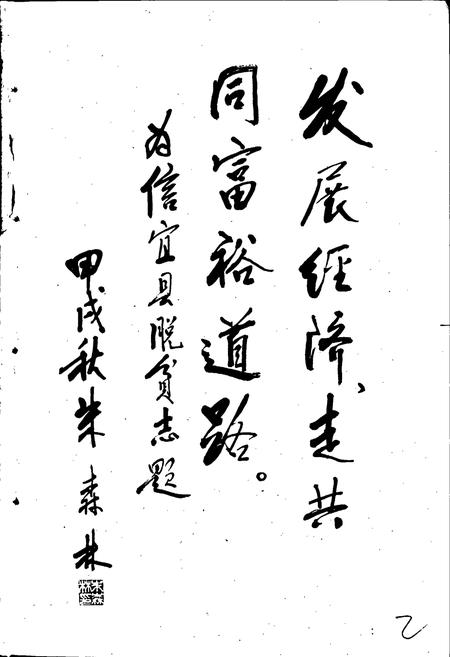 发展经济、走共
同富裕道路。
为信宜县脱贫志题
甲戌秋朱森林
朱森林印
乙